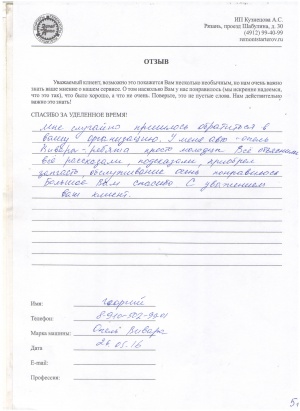 ИП Кузнецова А.С.
Рязань, проезд Шабулина, д. 30
(4912) 99-40-99
remontstarterov.ru
ОТЗЫВ
Уважаемый клиент, возможно это покажется Вам несколько необычным, но нам очень важно
знать ваше мнение о нашем сервисе. О том насколько Вам у нас понравилось (мы искренне надеемся,
что это так), что было хорошо, а что не очень. Поверьте, это не пустые слова. Нам действительно
важно это знать!
СПАСИБО ЗА УДЕЛЕННОЕ ВРЕМЯ!
Мне случайно пришлось обратиться в
вашу организацию. У меня авто - опель
Вивара - ребята просто молодцы. Всё объяснили
всё рассказали, подсказали, приобрел
запчасть, обслуживание очень понравилось
Большое Вам спасибо С уважением
ваш клиент.
Имя: Георгий
Телефон:
Марка машины: Опель Вивара
Дата: 26 05.16
E-mail:
Профессия: